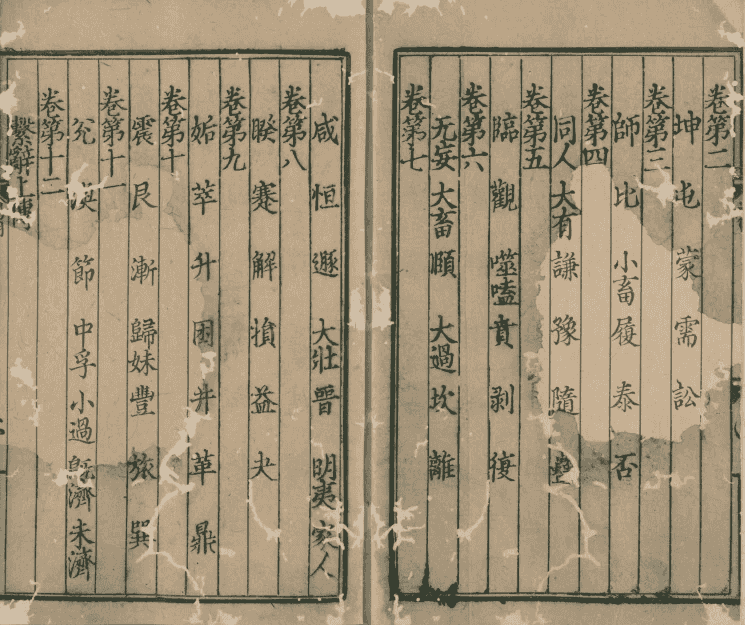 卷第二
坤 屯 蒙 需 訟
卷第三
師 比 小畜 履 泰 否
卷第四
同人 大有 謙 豫 隨 蠱
卷第五
臨 觀 噬嗑 賁 剥 復
卷第六
无妄 大畜 頤 大過 坎 離
卷第七
咸 恒 遯 大壯 晉 明夷 家人
卷第八
睽 蹇 解 損 益 夬
卷第九
姤 萃 升 困 井 革 鼎
卷第十
震 艮 漸 歸妹 豐 旅 巽
卷第十一
兌 渙 節 中孚 小過 旣濟 未濟
卷第十二
繫辭上傳